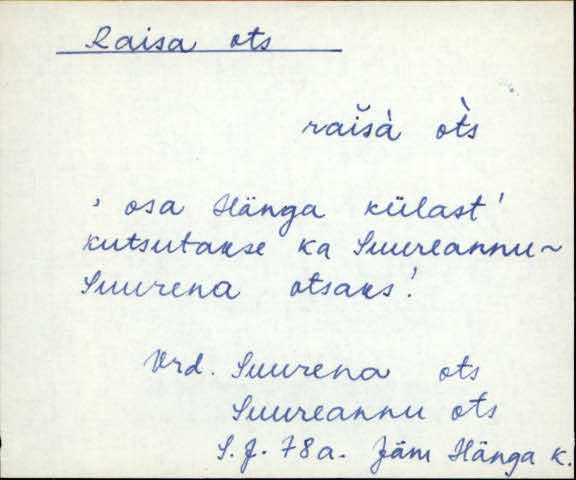 Raisa ots
raĭsà òts
' osa Hänga külast'
kutsutakse ka Suureannu~
Suurena otsaks!
Vrd. Suurena ots
Suureannu ots
S.J. 78a. Jäm Hänga k.